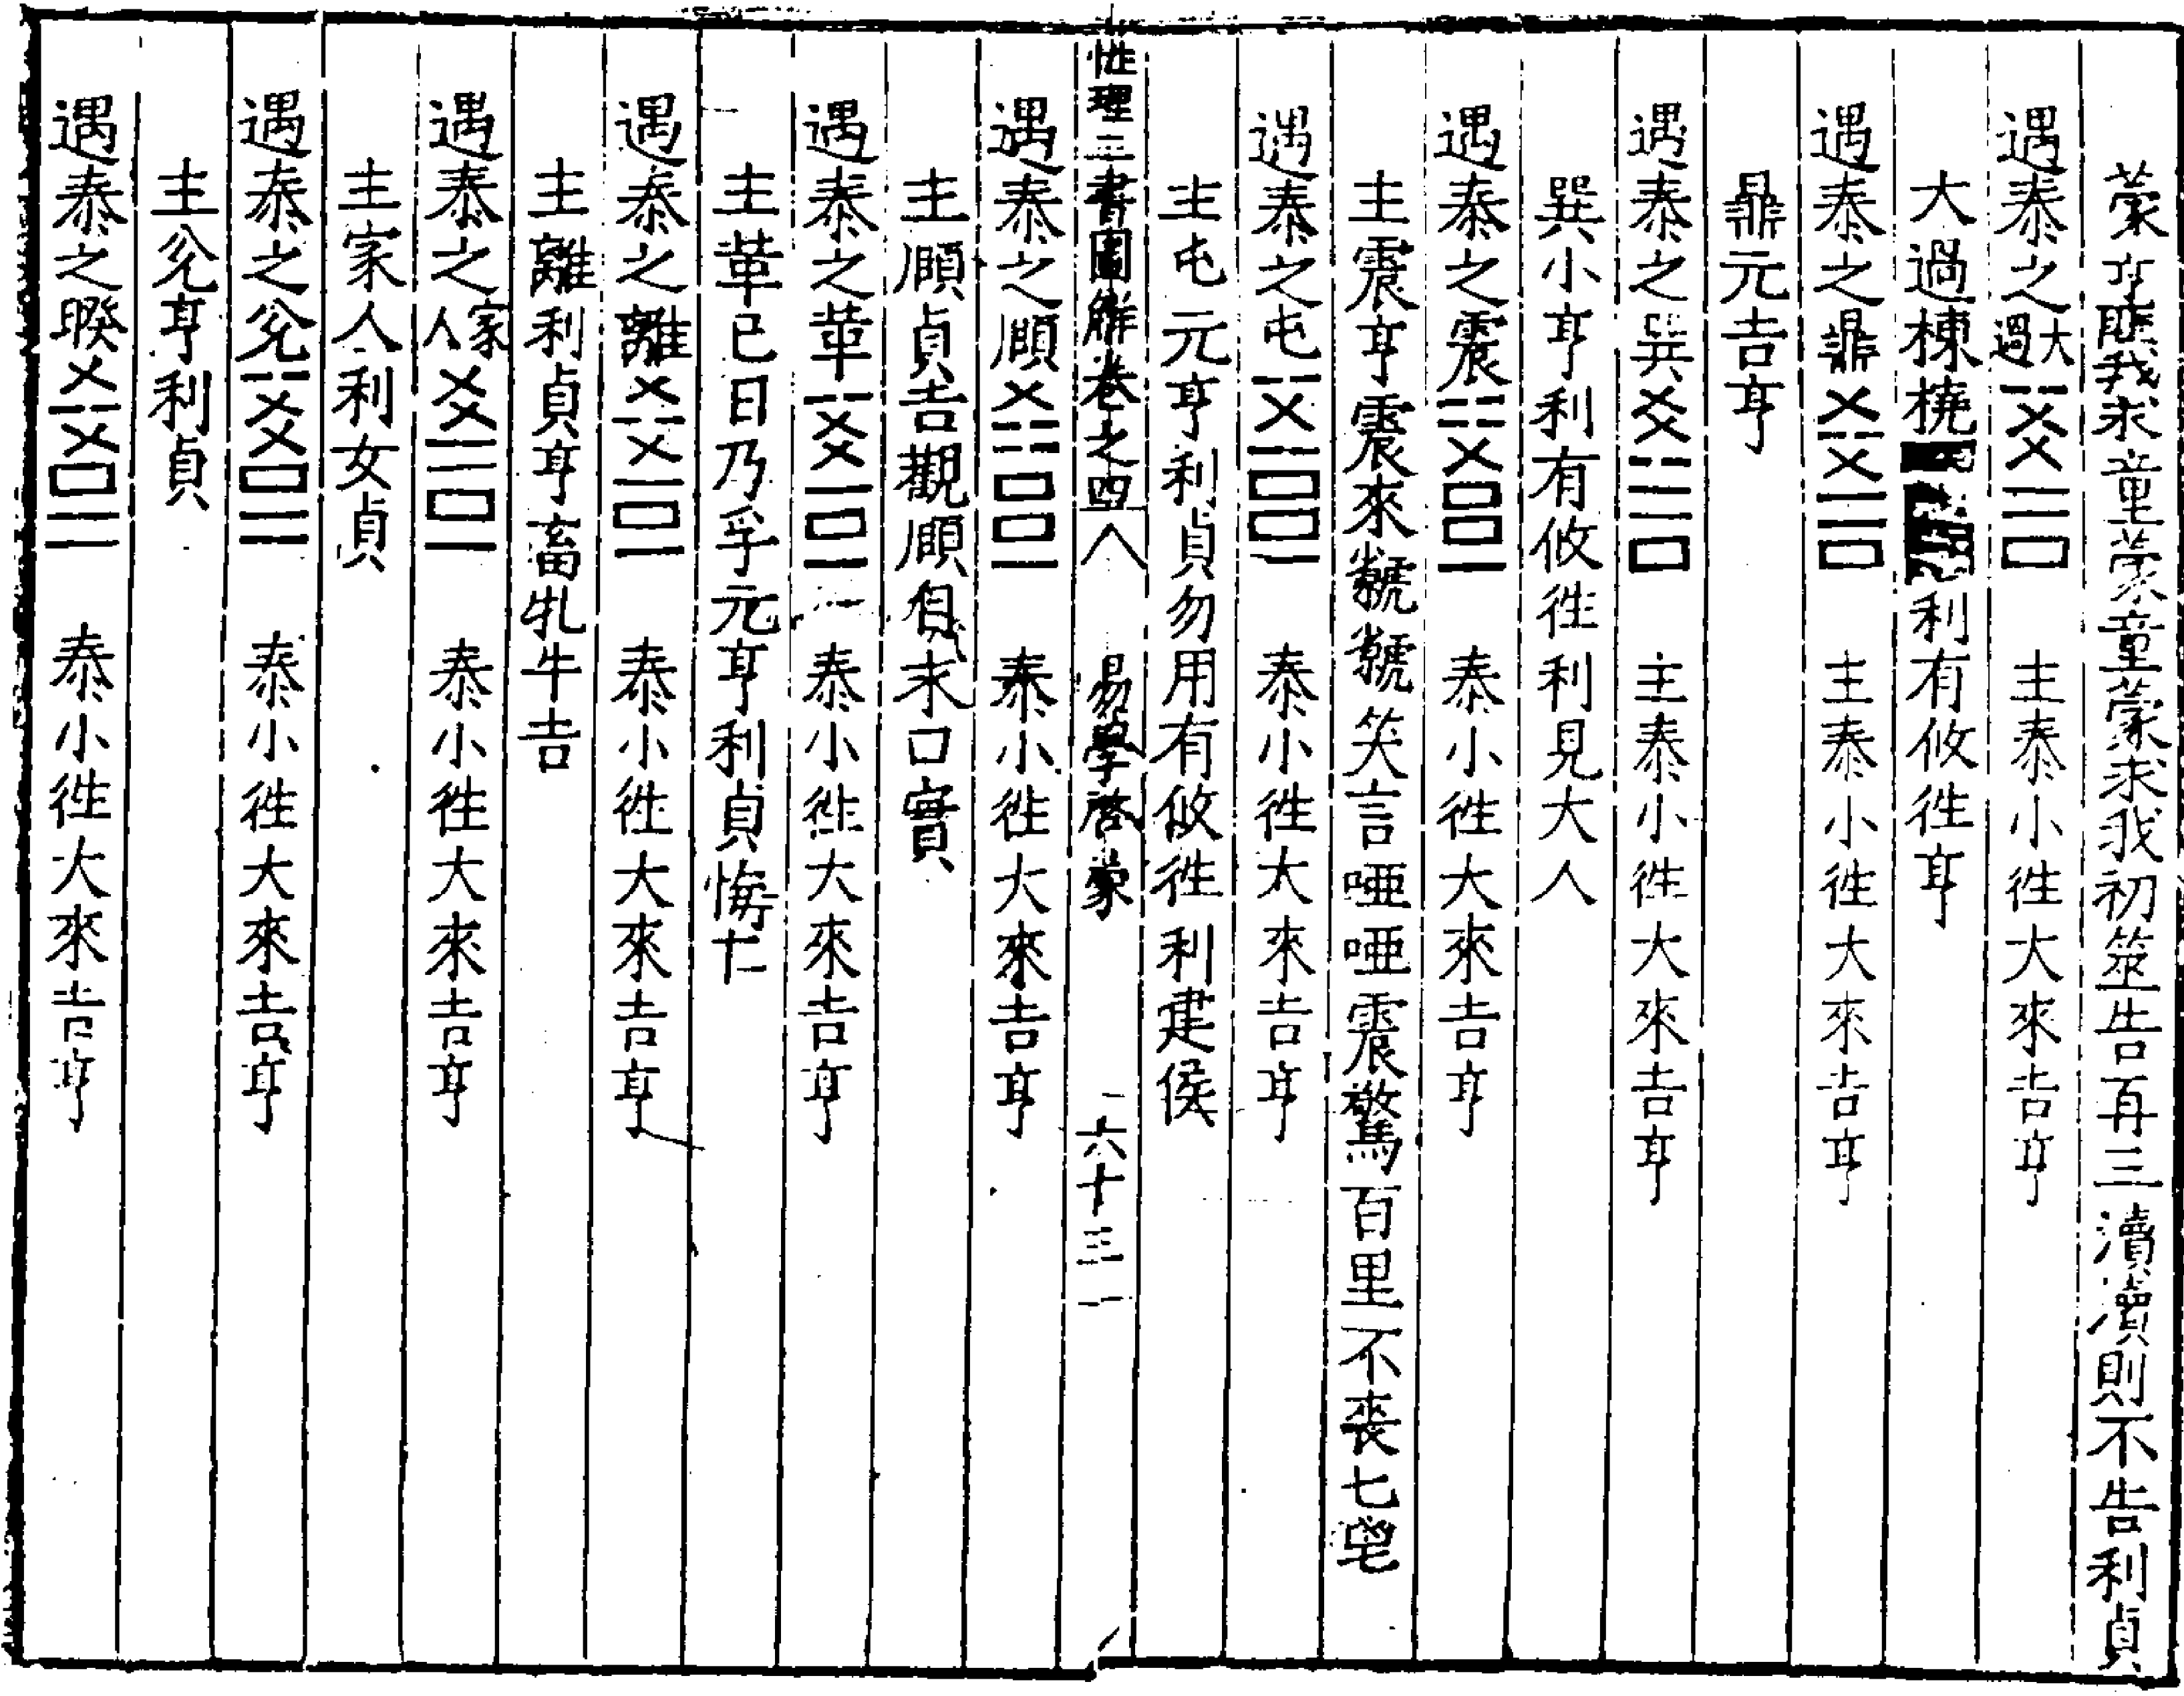 蒙亨匪我求童蒙童蒙求我初筮告再三瀆瀆則不告利貞
遇泰之大過 主泰小徃大來吉亨
大過棟橈利有攸徃亨
遇泰之鼎 主泰小徃大來吉亨
鼎元吉亨
遇泰之巽 主泰小徃大來吉亨
巽小亨利有攸徃利見大人
遇泰之震 泰小徃大來吉亨
主震亨震來虩虩笑言啞啞震驚百里不喪匕鬯
遇泰之屯 泰小徃大來吉亨
主屯元亨利貞勿用有攸徃利建侯
性理三書圖解卷之四八 易學啓蒙 六十三
遇泰之頤 泰小徃大來吉亨
主頤貞吉觀頤自求口實
遇泰之革 泰小徃大來吉亨
主革已日乃孚元亨利貞悔亡
遇泰之離 泰小徃大來吉亨
主離利貞亨畜牝牛吉
遇泰之家人 泰小徃大來吉亨
主家人利女貞
遇泰之兊 泰小徃大來吉亨
主兊亨利貞
遇泰之睽 泰小徃大來吉亨